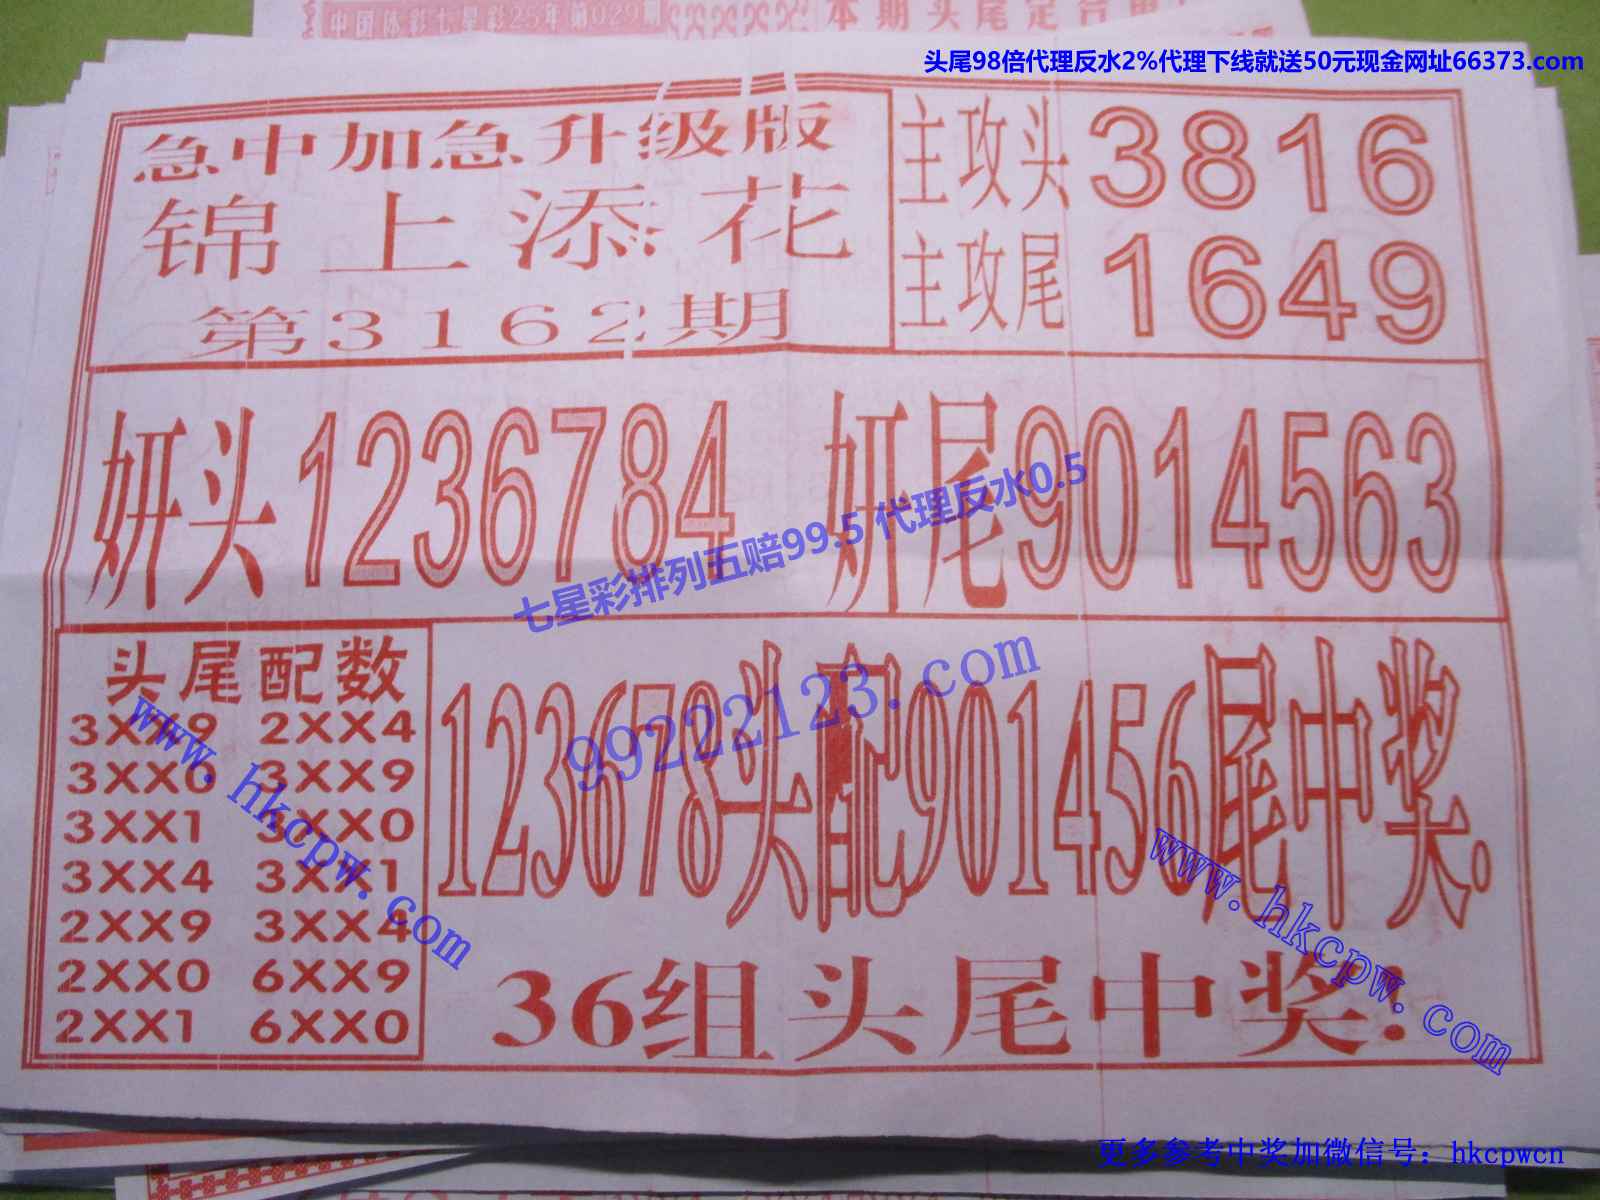 中国体彩七星彩25年第029期
本期头尾定合单
头尾98倍代理反水2%代理下线就送50元现金网址66373.com
急中加急升级版
锦上添花
第3162期
主攻头3816
主攻尾1649
妍头1236784 妍尾9014563
七星彩排列五赔99.5 代理反水0.5
99222123.com
头尾配数
3XX9 2XX4
3XX0 3XX9
3XX1 3XX0
3XX4 3XX1
2XX9 3XX4
2XX0 6XX9
2XX1 6XX0
123678头配901456尾中奖.
36组头尾中奖!
www.hkcpw.com
www.hkcpw.com
更多参考中奖加微信号：hkcpwcn